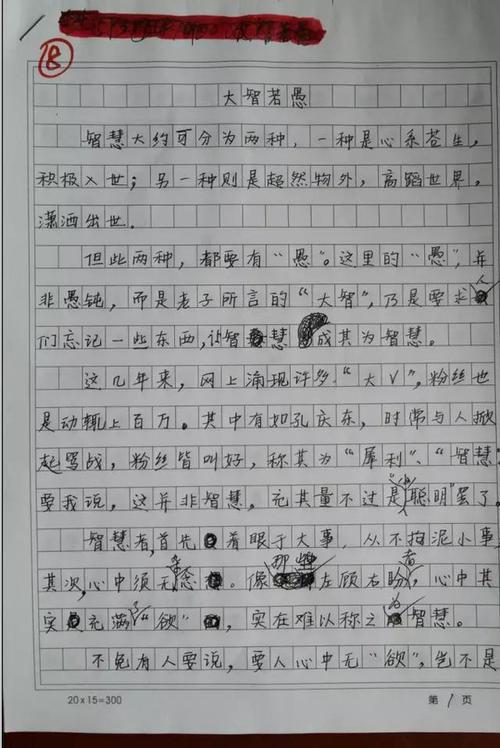 18
大智若愚
智慧大约可分为两种，一种是心系苍生，
积极入世；另一种则是超然物外，高蹈世界，
潇洒出世。
但些两种，都要有“愚”。这里的“愚”，并
非愚钝，而是老子所言的“大智”，乃是要求人
们忘记一些东西，让智慧成其为智慧。
这几年来，网上涌现许多“大V”，粉丝也
是动辄上百万。其中有如孔庆东，时常与人掀
起骂战，粉丝皆叫好，称其为“犀利”、“智慧”
要我说，这并非智慧。充其量不过是“小聪明”罢了。
智慧者，首先着眼于大事，从不拘泥小事
其次，心中须无杂念。像那些左顾右盼者，心中其
实充满了“欲”，实在难以称之为智慧。
不免有人要说，要人心中无“欲”，岂不是
20×15=300
第1页